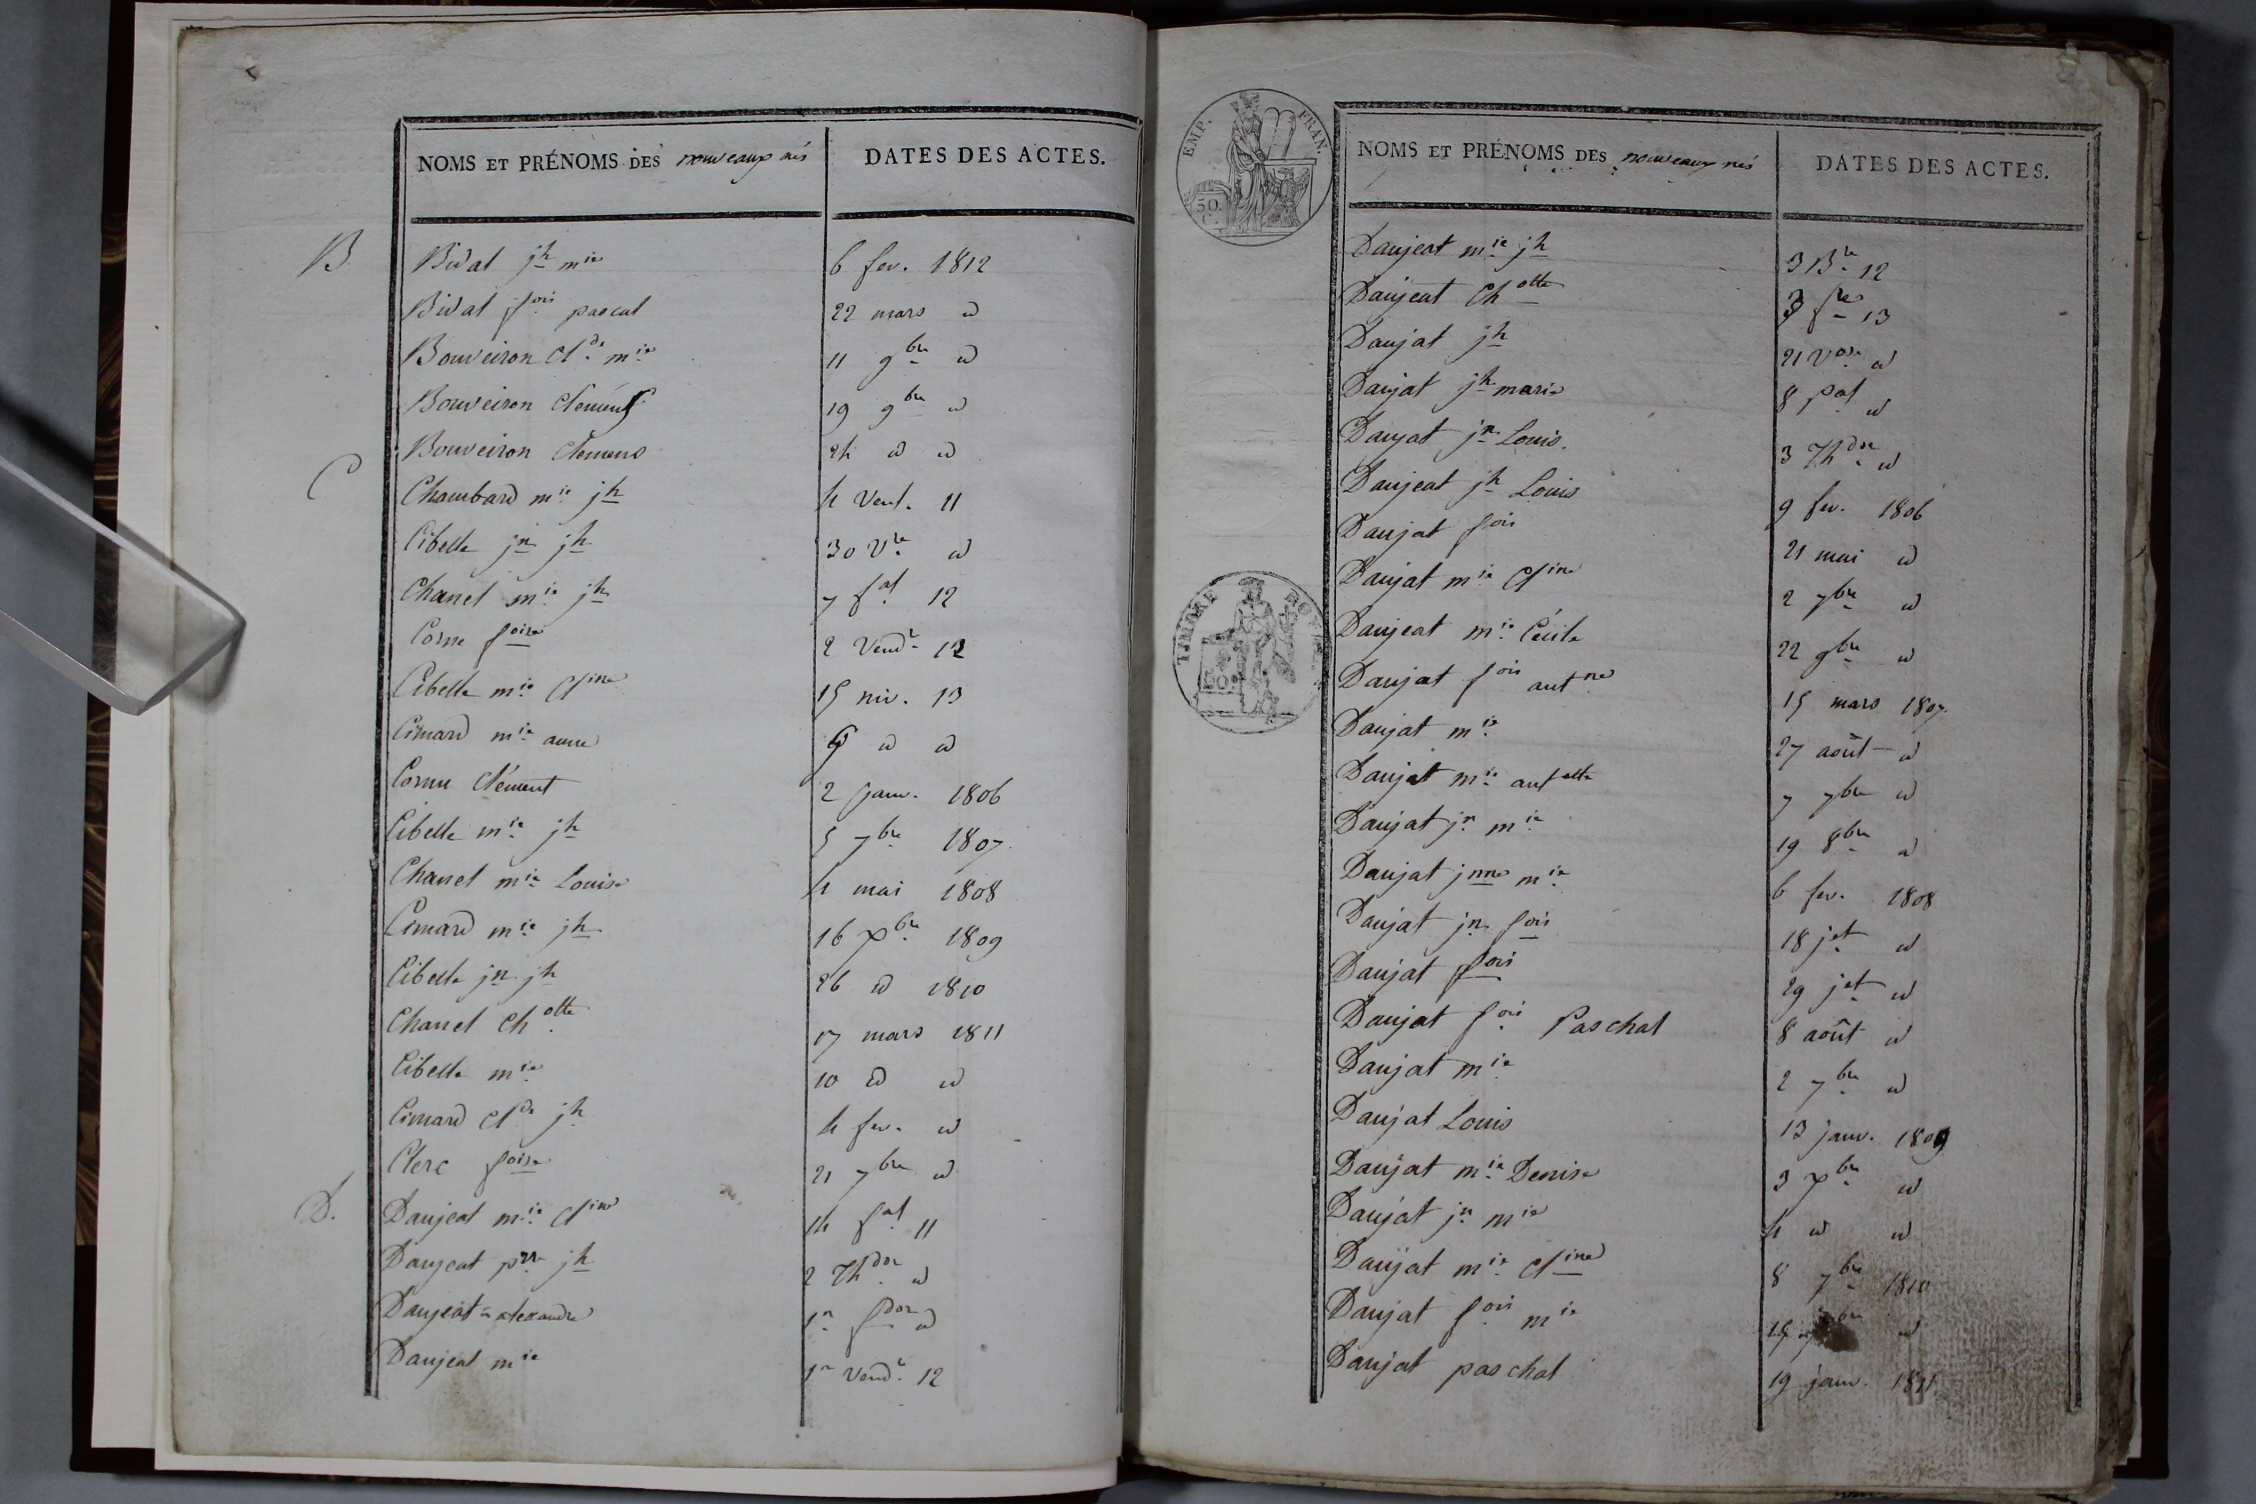 NOMS ET PRÉNOMS DES nouveaux nés DATES DES ACTES.
B Bidal jh mie 6 fev. 1812
Bidal fois pascal 22 mars d
Bouveiron Clde mie 11 9bre d
Bouveiron Clément 19 9bre d
Bouveiron Clemens 24 d d
C Chambard mie jh 4 Vent. 11
Cibelle jn jh 30 Vre d
Chanel mie jh 7 fal 12
Corne foise 2 Vendre 12
Cibelle mie Cline 15 niv. 13
Cimard mie anne d d
Cornu Clément 2 Janv. 1806
Cibelle mie jh 5 7bre 1807.
Chanel mie Louise 4 mai 1808
Cimard mie jh 16 Xbre 1809
Cibelle jn jh 26 d 1810
Chanel Chotte 17 mars 1811
Cibelle mie 10 d d
Cimard Clde jh 4 fev. d
Clerc foise 21 7bre d
D. Daujeat mie Cline 14 fal 11
Daujeat prre jh 2 Thdor d
Daujeat alexandre 1er fdor d
Daujeat mie 1er Vendre 12
EMP. FRAN.
50. C.
TIMBRE
50
NOMS ET PRÉNOMS DES nouveaux nés DATES DES ACTES.
Daujeat mie jh 3 Bre 12
Daujeat Chotte 3 fre 13
Daujat jh 21 Vose d
Daujat jh marie 8 pal d
Daujat jn Louis. 3 Thdor d
Daujeat jh Louis 9 fev. 1806
Daujat fois 21 mai d
Daujat mie Cline 2 7bre d
Daujeat mie Cécile 22 9bre d
Daujat fois antne 15 mars 1807.
Daujat mie 27 août d
Daujat mie antette 7 7bre d
Daujat jn mie 19 8bre d
Daujat jnne mie 6 fev. 1808
Daujat jn fois 18 jet d
Daujat fois 29 jet d
Daujat fois Paschal 8 août d
Daujat mie 2 7bre d
Daujat Louis 13 janv. 1809
Daujat mie Denise 3 Xbre d
Daujat jn mie 4 d d
Daujat mie Cline 8 7bre 1810
Daujat fois mie 15 d
Daujat paschal 19 janv. 1811